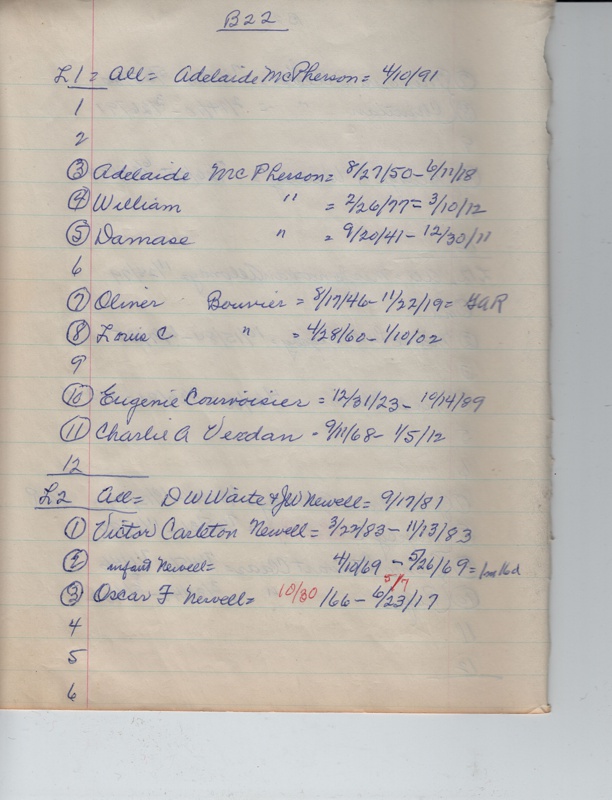 B22
L1 = All = Adelaide McPherson = 4/10/91
1
2
③ Adelaide McPherson = 8/27/50 - 6/11/18
④ William " = 2/26/77 = 3/10/12
⑤ Damase " = 9/20/41 - 12/30/11
6
⑦ Oliver Bouvier = 8/17/46 - 11/22/19 = GAR
⑧ Louis C " = 4/28/60 - 1/10/02
9
⑩ Eugenie Courvoisier = 12/31/23 - 10/14/89
⑪ Charlie A Verdan - 9/11/68 - 1/5/12
12
L2 All = D W Waite & JW Newell = 9/17/81
① Victor Carleton Newell = 3/22/83 - 11/13/83
② infant Newell = 4/10/69 - 5/26/69 =
5/7
③ Oscar F Newell = 10/30/66 - 6/23/17
4
5
6